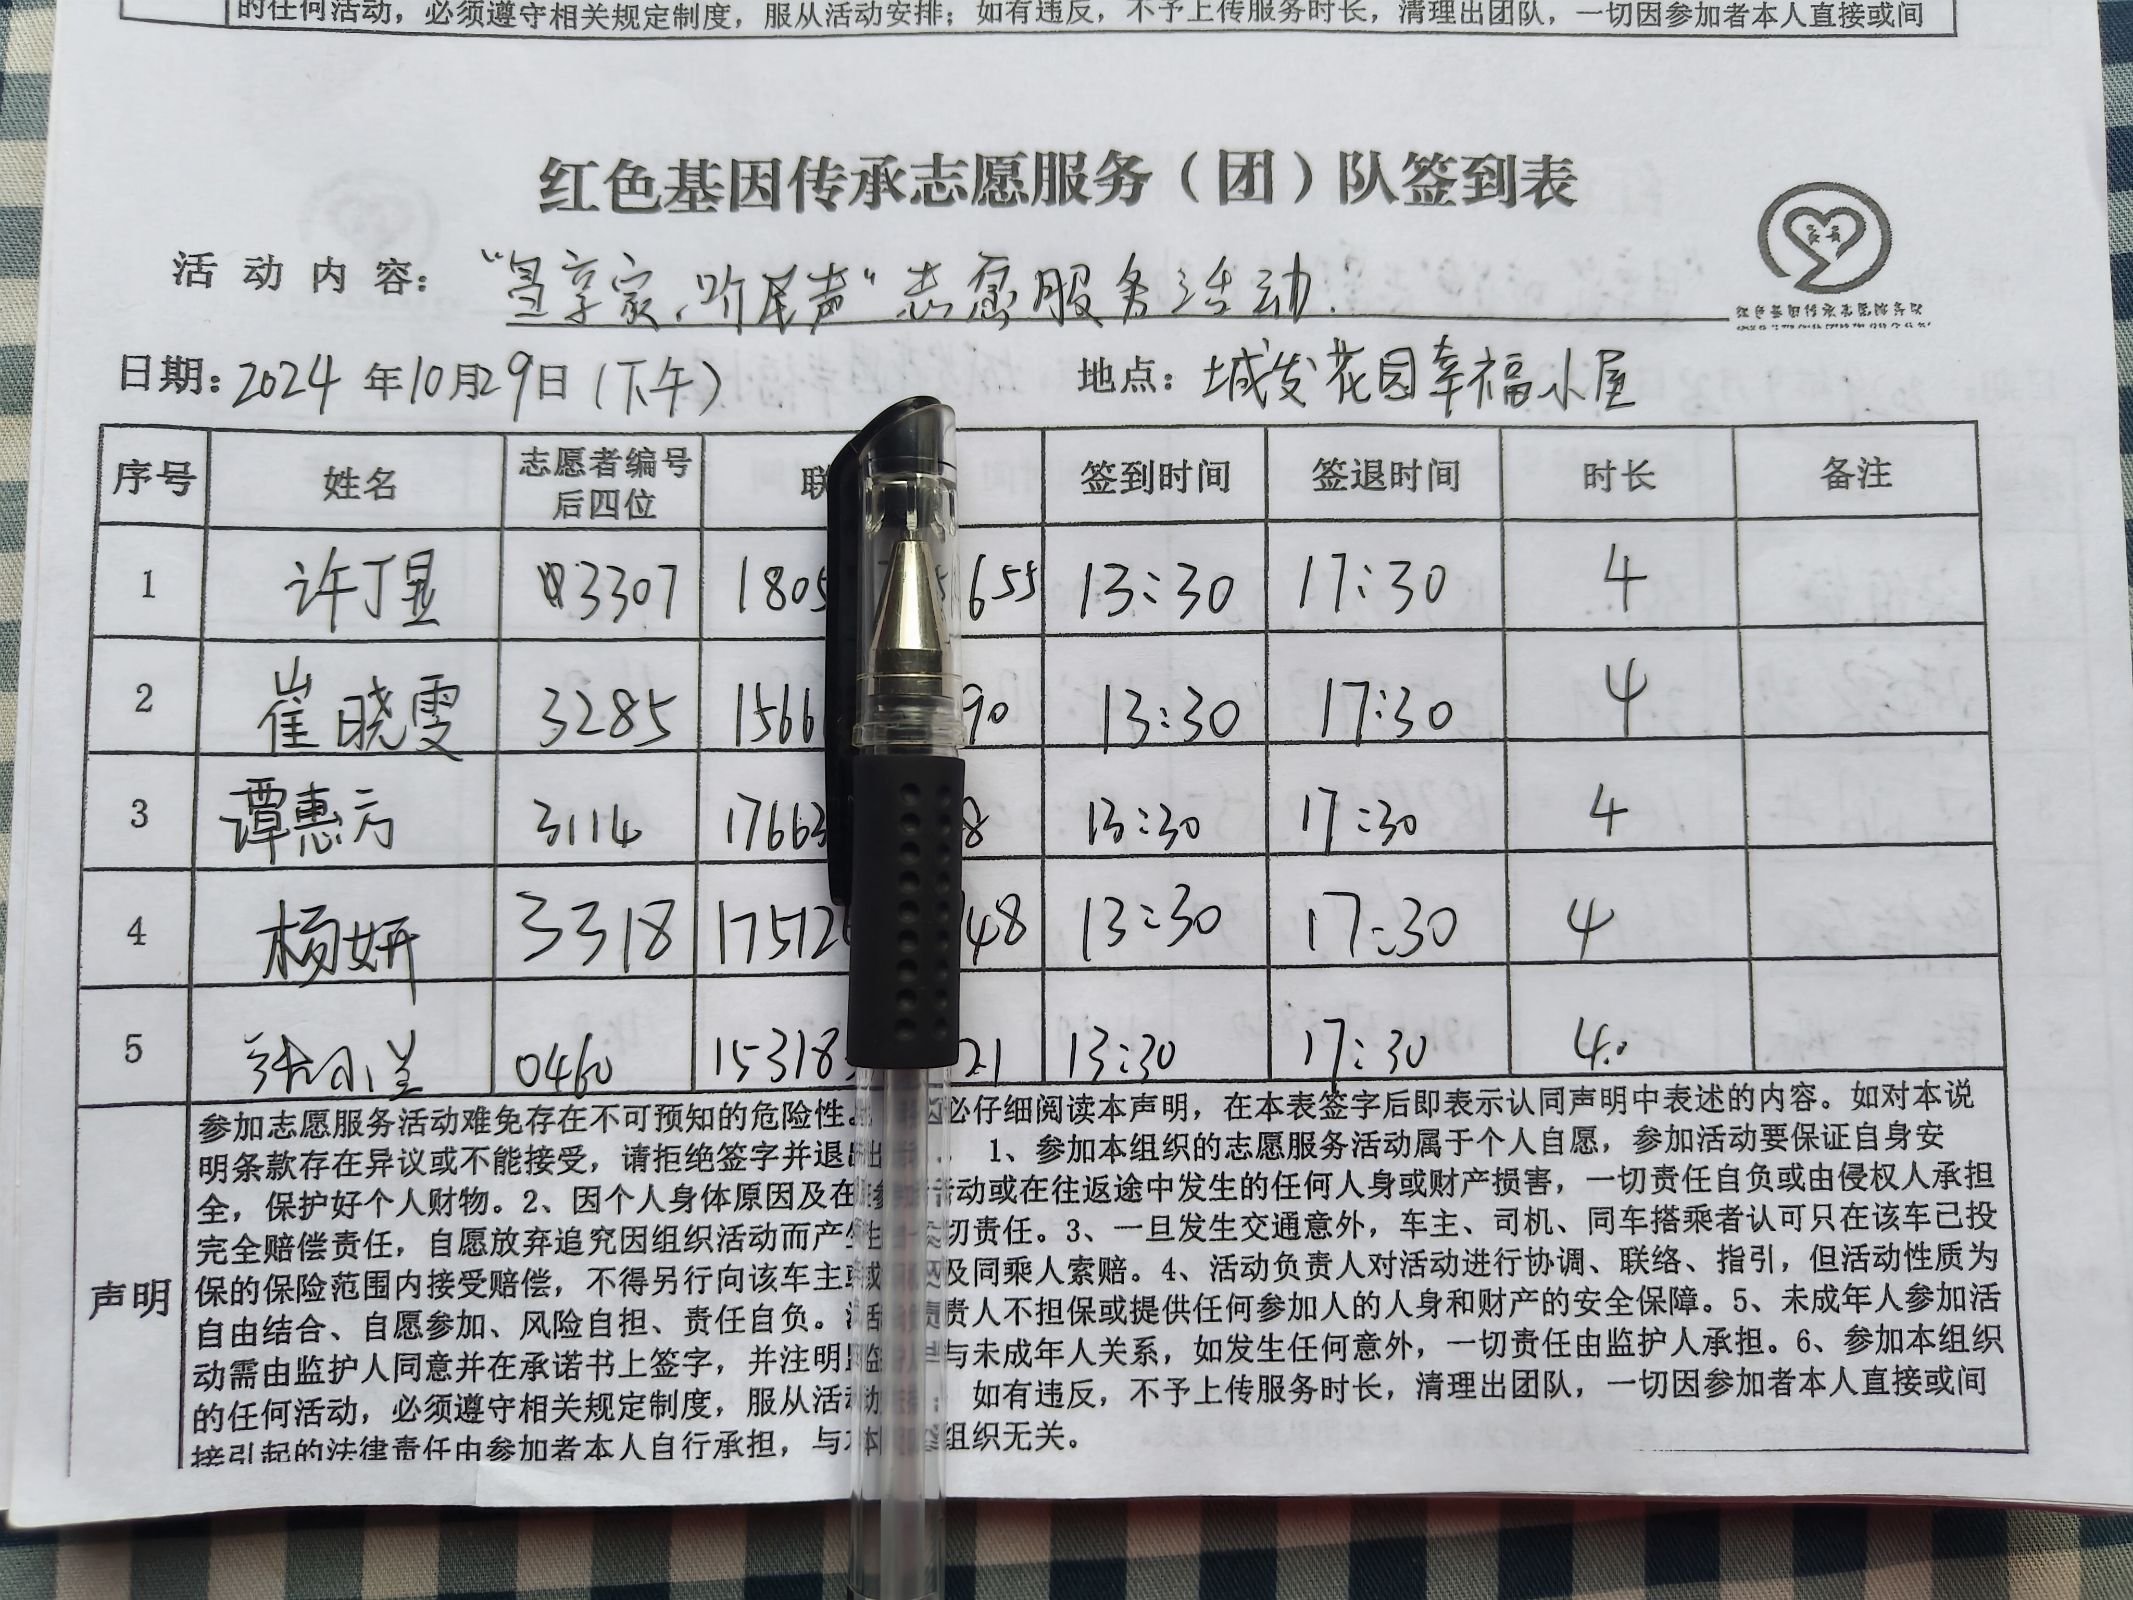 的任何活动，必须遵守相关规定制度，服从活动安排；如有违反，不予上传服务时长，清理出团队，一切因参加者本人直接或间
红色基因传承志愿服务（团）队签到表
活动内容：“ 享家、听民声”志愿服务活动.
日期：2024年10月29日（下午） 地点：城发花园幸福小屋
序号 姓名 志愿者编号后四位 联 签到时间 签退时间 时长 备注
1 许丁显 3307 1805 655 13:30 17:30 4
2 崔晓雯 3285 1566 90 13:30 17:30 4
3 谭惠方 3114 17663 8 13:30 17:30 4
4 杨妍 3318 17512 48 13:30 17:30 4
5 张 0460 15318 21 13:30 17:30 4.
声明
参加志愿服务活动难免存在不可预知的危险性。 必仔细阅读本声明，在本表签字后即表示认同声明中表述的内容。如对本说
明条款存在异议或不能接受，请拒绝签字并退出 1、参加本组织的志愿服务活动属于个人自愿，参加活动要保证自身安
全，保护好个人财物。2、因个人身体原因及在参 动或在往返途中发生的任何人身或财产损害，一切责任自负或由侵权人承担
完全赔偿责任，自愿放弃追究因组织活动而产生 切责任。3、一旦发生交通意外，车主、司机、同车搭乘者认可只在该车已投
保的保险范围内接受赔偿，不得另行向该车主或 及同乘人索赔。4、活动负责人对活动进行协调、联络、指引，但活动性质为
自由结合、自愿参加、风险自担、责任自负。活 责人不担保或提供任何参加人的人身和财产的安全保障。5、未成年人参加活
动需由监护人同意并在承诺书上签字，并注明监 与未成年人关系，如发生任何意外，一切责任由监护人承担。6、参加本组织
的任何活动，必须遵守相关规定制度，服从活动 ；如有违反，不予上传服务时长，清理出团队，一切因参加者本人直接或间
接引起的法律责任由参加者本人自行承担，与本 组织无关。